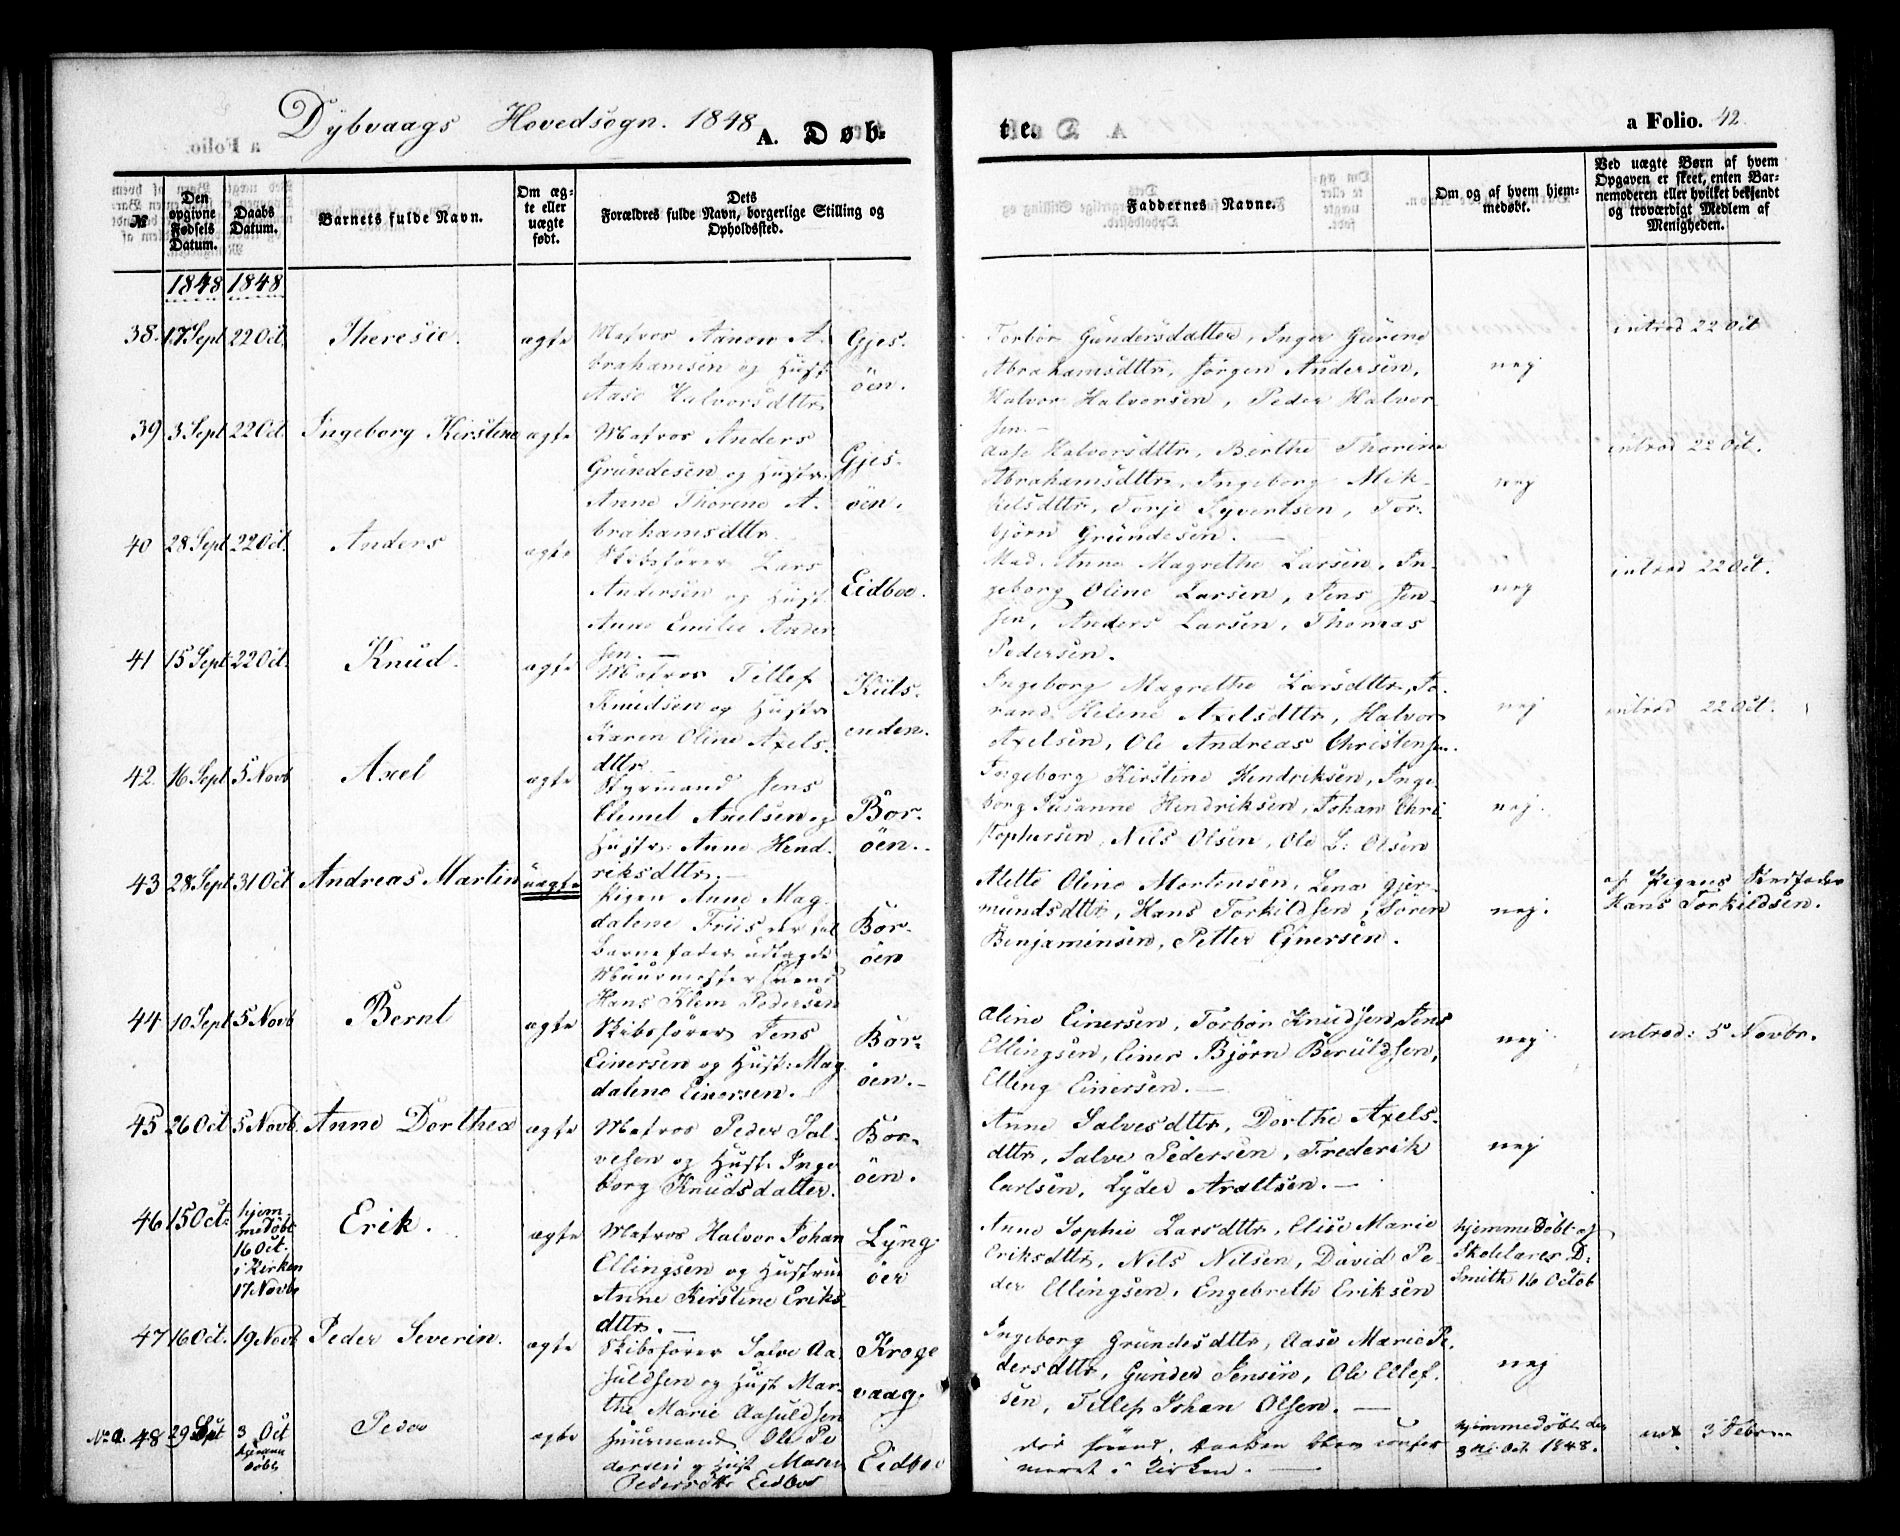 Dybvaags Hovedsogn. 1848
A. Døb-
te.
a Folio. 42
No
Den opgivne Fødsels Datum.
Daabs Datum.
Barnets fulde Navn.
Om ægte eller uægte født.
Dets Forældres fulde Navn, borgerlige Stilling og Opholdssted.
Faddernes Navne.
Om og af hvem hjemmedøbt.
Ved uægte Børn af hvem Opgaven er skeet, enten Barnemoderen eller hvilket bekjendt og troværdigt Medlem af Menigheden.
1848 1848
38. 17 Sept 22 Oct. Theresie. ægte
Matros Aanon A-
brahamsen og Hust
Aase Halvorsdttr
Gjes-
öen.
Torbör Gundersdatter, Inger Gurine
Abrahamsdttr, Jörgen Andersen,
Halvor Halvorsen, Peder Halvor
sen.
nej
introd 22 Oct
39 3 Sept 22 Oct. Ingeborg Kirstine ægte
Matros Anders
Grundesen og Hustr
Anne Thorene A-
brahamsdttr
Gjes-
öen.
Aase Halvorsdttr, Berthe Thorine
Abrahamsdttr, Ingeborg Mik-
kelsdttr, Torje Syvertsen, Tor-
björn Grundesen.
nej
introd 22 Oct.
40 28 Sept 22 Oct. Anders ægte
Skibsförer Lars
Andersen og Hust
Anne Emilie Ander
sen.
Eidboe.
Mad. Anne Magrethe Larsen, In-
geborg Oline Larsen, Jens Jen-
sen, Anders Larsen, Thomas
Pedersen.
nej
introd 22 Oct.
41 15 Sept. 22 Oct. Knud. ægte
Matros Tellef
Knudsen og Hustr
Karen Oline Axels-
dttr
Kuls-
enden.
Ingeborg Magrethe Larsdttr, To-
rand Helene Axelsdttr, Halvor
Axelsen, Ole Andreas Christensen.
nej
introd 22 Oct.
42. 16 Sept 5 Novb Axel ægte
Styrmand Jens
Clemet Axelsen og
Hustr. Anne Hend-
riksdttr.
Bor-
öen.
Ingeborg Kirstine Hendriksen, Inge
borg Susanne Hendriksen, Johan Chri
stophersen, Nils Olsen, Ole L: Olsen
nej.
43 28 Sept 31 Oct Andreas Martin uægte
Pigen Anne Mag
dalene Friis der som
Barnefader udlagde
Muurmester Svend
Hans Klem Pedersen
Bor-
öen
Mette Oline Mortensen, Lena Gjer-
mundsdttr, Hans Torkildsen, Soren
Benjaminsen, Petter Ejnersen.
nej.
af Pigens Stedfader
Hans Torkildsen.
44 10 Sept 5 Novb Bernt ægte
Skibsförer Jens
Einersen og Hust: Mag
dalene Einersen.
Bor-
öen.
Oline Einersen, Torbör Knudsen, Jens
Ellingsen, Einer Björn Beruldsen,
Elling Einersen.
nej
introd: 5 Novbr.
45 26 Oct 5 Novb. Anne Dorthea ægte
Matros Peder Sal-
vesen og Hust. Inge
borg Knudsdatter.
Bor-
öen.
Anne Salvesdttr, Dorthe Axels-
dttr, Salve Pedersen, Frederik
Carlsen, Lyder Araltsen.
nej
46 15 Oct. hjem-
medöbt
16 Oct.
i Kirken
17 Novb Erik. ægte
Matros Halvor Johan
Ellingsen og Hustrue
Anne Kirstine Eriks
dttr.
Lyng
öer
Anne Sophie Larsdttr, Elise Marie
Eriksdttr, Nils Nilsen, David Pe-
der Ellingsen, Engebreth Eriksen
hjemmedöbt af
Skolelærer D.
Smith 16 Octob
47 16 Oct. 19 Novb Peder Severin. ægte
Skibsförer Salve Aa-
suldsen og Hust Mar-
the Marie Aasuldsen
Kroge
vaag.
Ingeborg Grundesdttr, Aase Marie Pe-
dersdttr, Gunder Jensen, Ole Ellef-
sen, Tellef Johan Olsen.
nej
48 29 Sept 3 Oct
hjemme
döbt Peder ægte
Huusmand Ole Pe
dersen og Hust Maren
Pedersdttr Eidboe
Eidboe
döde forend Daaben blev confir
meret i Kirken.
hjemmedöbt den
3die Oct. 1848.
3 Febr